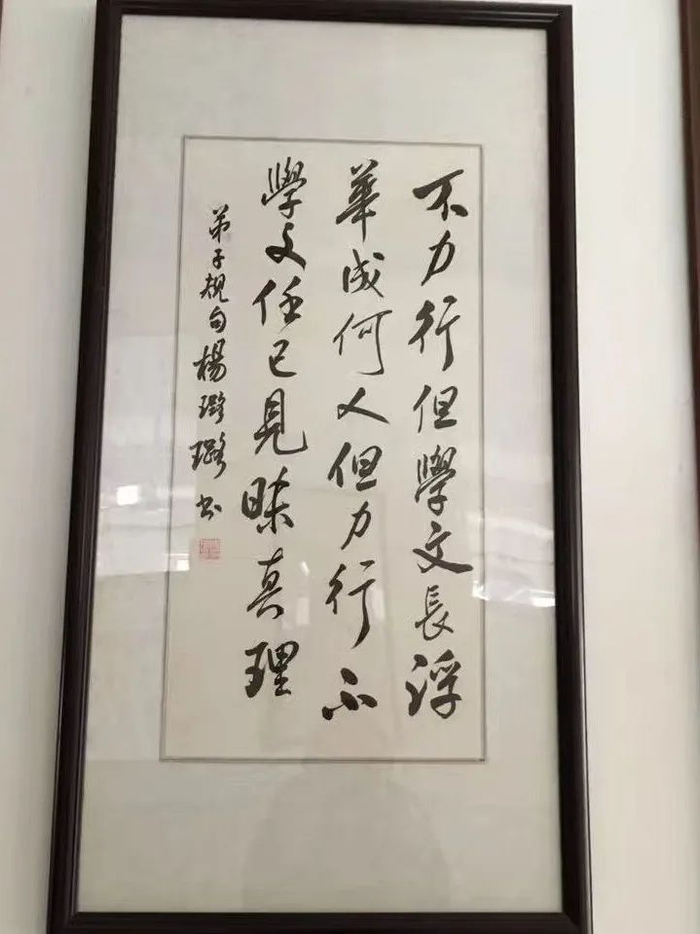 不力行但學文長浮
華成何人但力行不
學文任己見昧真理
弟子規句楊璐璐書